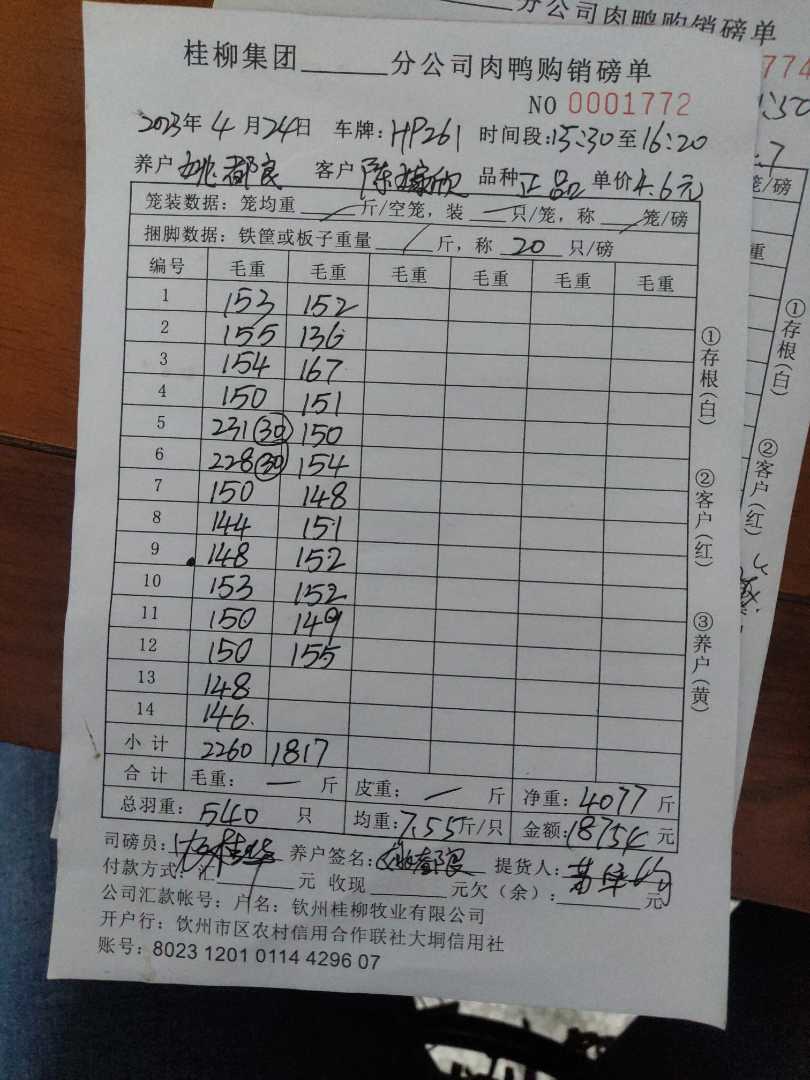 分公司肉鸭购销磅单
774
桂柳集团______分公司肉鸭购销磅单
NO 0001772
2023年 4 月 24日 车牌: HP261 时间段: 15:30 至 16:20
养户 姚都良 客户 陈 欣 品种 正品 单价 4.6元
笼装数据: 笼均重 / 斤/空笼, 装 — 只/笼, 称 / 笼/磅
捆脚数据: 铁筐或板子重量 / 斤, 称 20 只/磅
编号 毛重 毛重 毛重 毛重 毛重 毛重
1 153 152
2 155 136
3 154 167
4 150 151
5 231 (30) 150
6 228 (30) 154
7 150 148
8 144 151
9 148 152
10 153 152
11 150 149
12 150 155
13 148
14 146
小计 2260 1817
合计 毛重: — 斤 皮重: / 斤 净重: 4077 斤
总羽重: 540 只 均重: 7.55斤/只 金额: 18754 元
司磅员: 养户签名: 姚都良 提货人:
付款方式: 汇______元 收现______元欠(余):______元
公司汇款帐号: 户名: 钦州桂柳牧业有限公司
开户行: 钦州市区农村信用合作联社大垌信用社
账号: 8023 1201 0114 4296 07
①存根(白)
②客户(红)
③养户(黄)
笼/磅
重
①存根(白)
②客户(红)